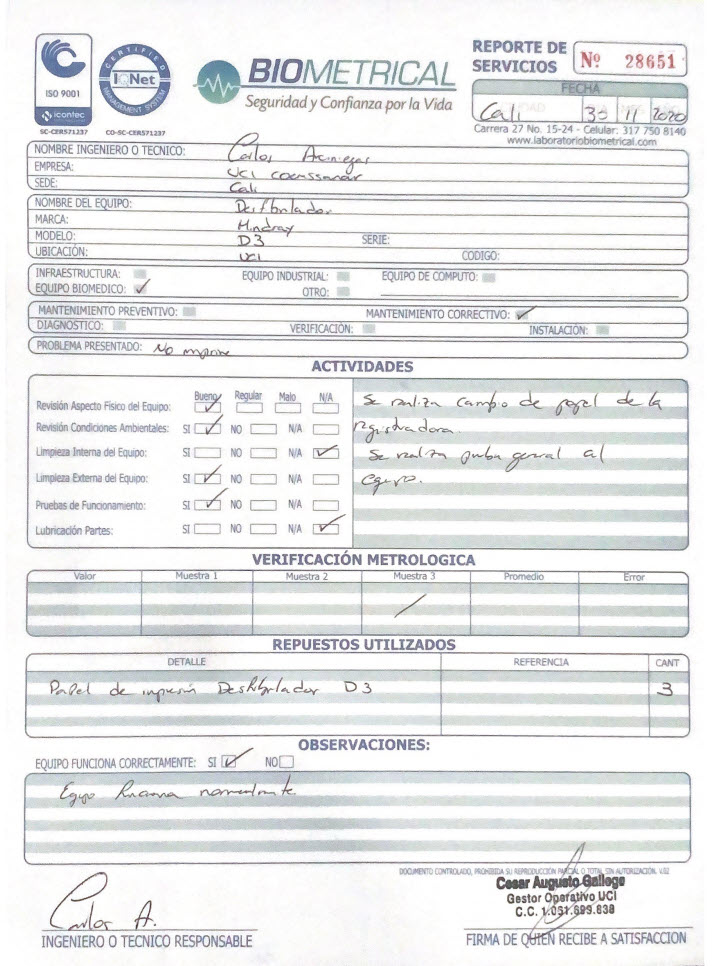 CERTIFIED
IQNet
MANAGEMENT SYSTEM
ISO 9001
icontec
SC-CER571237
CO-SC-CER571237
BIOMETRICAL
Seguridad y Confianza por la Vida
REPORTE DE SERVICIOS
Nº 28651
FECHA
Cali 30 11 2020
Carrera 27 No. 15-24 - Celular: 317 750 8140
www.laboratoriobiometrical.com
NOMBRE INGENIERO O TECNICO: Carlos
EMPRESA: UCI
SEDE: Cali
NOMBRE DEL EQUIPO: Desfibrilador
MARCA: Mindray
MODELO: D3 SERIE:
UBICACIÓN: UCI CODIGO:
INFRAESTRUCTURA: EQUIPO INDUSTRIAL: EQUIPO DE COMPUTO:
EQUIPO BIOMEDICO: ✓ OTRO:
MANTENIMIENTO PREVENTIVO: MANTENIMIENTO CORRECTIVO: ✓
DIAGNOSTICO: VERIFICACIÓN: INSTALACIÓN:
PROBLEMA PRESENTADO: No imprime
ACTIVIDADES
Bueno Regular Malo N/A
Revisión Aspecto Físico del Equipo: ✓
Revisión Condiciones Ambientales: SI ✓ NO N/A
Limpieza Interna del Equipo: SI NO N/A ✓
Limpieza Externa del Equipo: SI ✓ NO N/A
Pruebas de Funcionamiento: SI ✓ NO N/A
Lubricación Partes: SI NO N/A ✓
Se realiza cambio de papel de la
registradora.
Se realiza prueba general al
equipo.
VERIFICACIÓN METROLOGICA
Valor Muestra 1 Muestra 2 Muestra 3 Promedio Error
REPUESTOS UTILIZADOS
DETALLE REFERENCIA CANT
Papel de impresión Desfibrilador D3 3
OBSERVACIONES:
EQUIPO FUNCIONA CORRECTAMENTE: SI ✓ NO
Equipo funciona normalmente
DOCUMENTO CONTROLADO, PROHIBIDA SU REPRODUCCIÓN PARCIAL O TOTAL SIN AUTORIZACIÓN. V.02
Carlos A.
INGENIERO O TECNICO RESPONSABLE
Cesar Augusto Gallego
Gestor Operativo UCI
C.C. 1.061.699.838
FIRMA DE QUIEN RECIBE A SATISFACCION